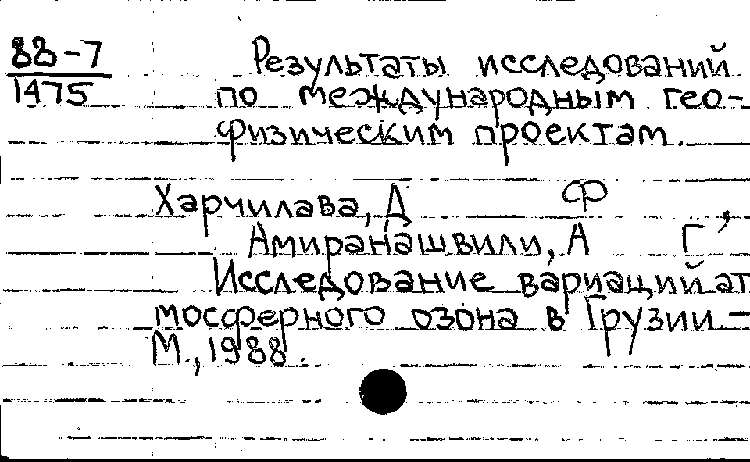 88-7
1475
Результаты исследований
по международным гео-
физическим проектам.
Харчилава, Д Ф ,
Амиранашвили, А Г
Исследование вариаций ат
мосферного озона в Грузии –
М., 1988.